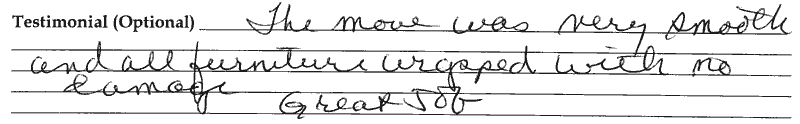 Testimonial (Optional) The move was very smooth
and all furniture wrapped with no
damage Great Job